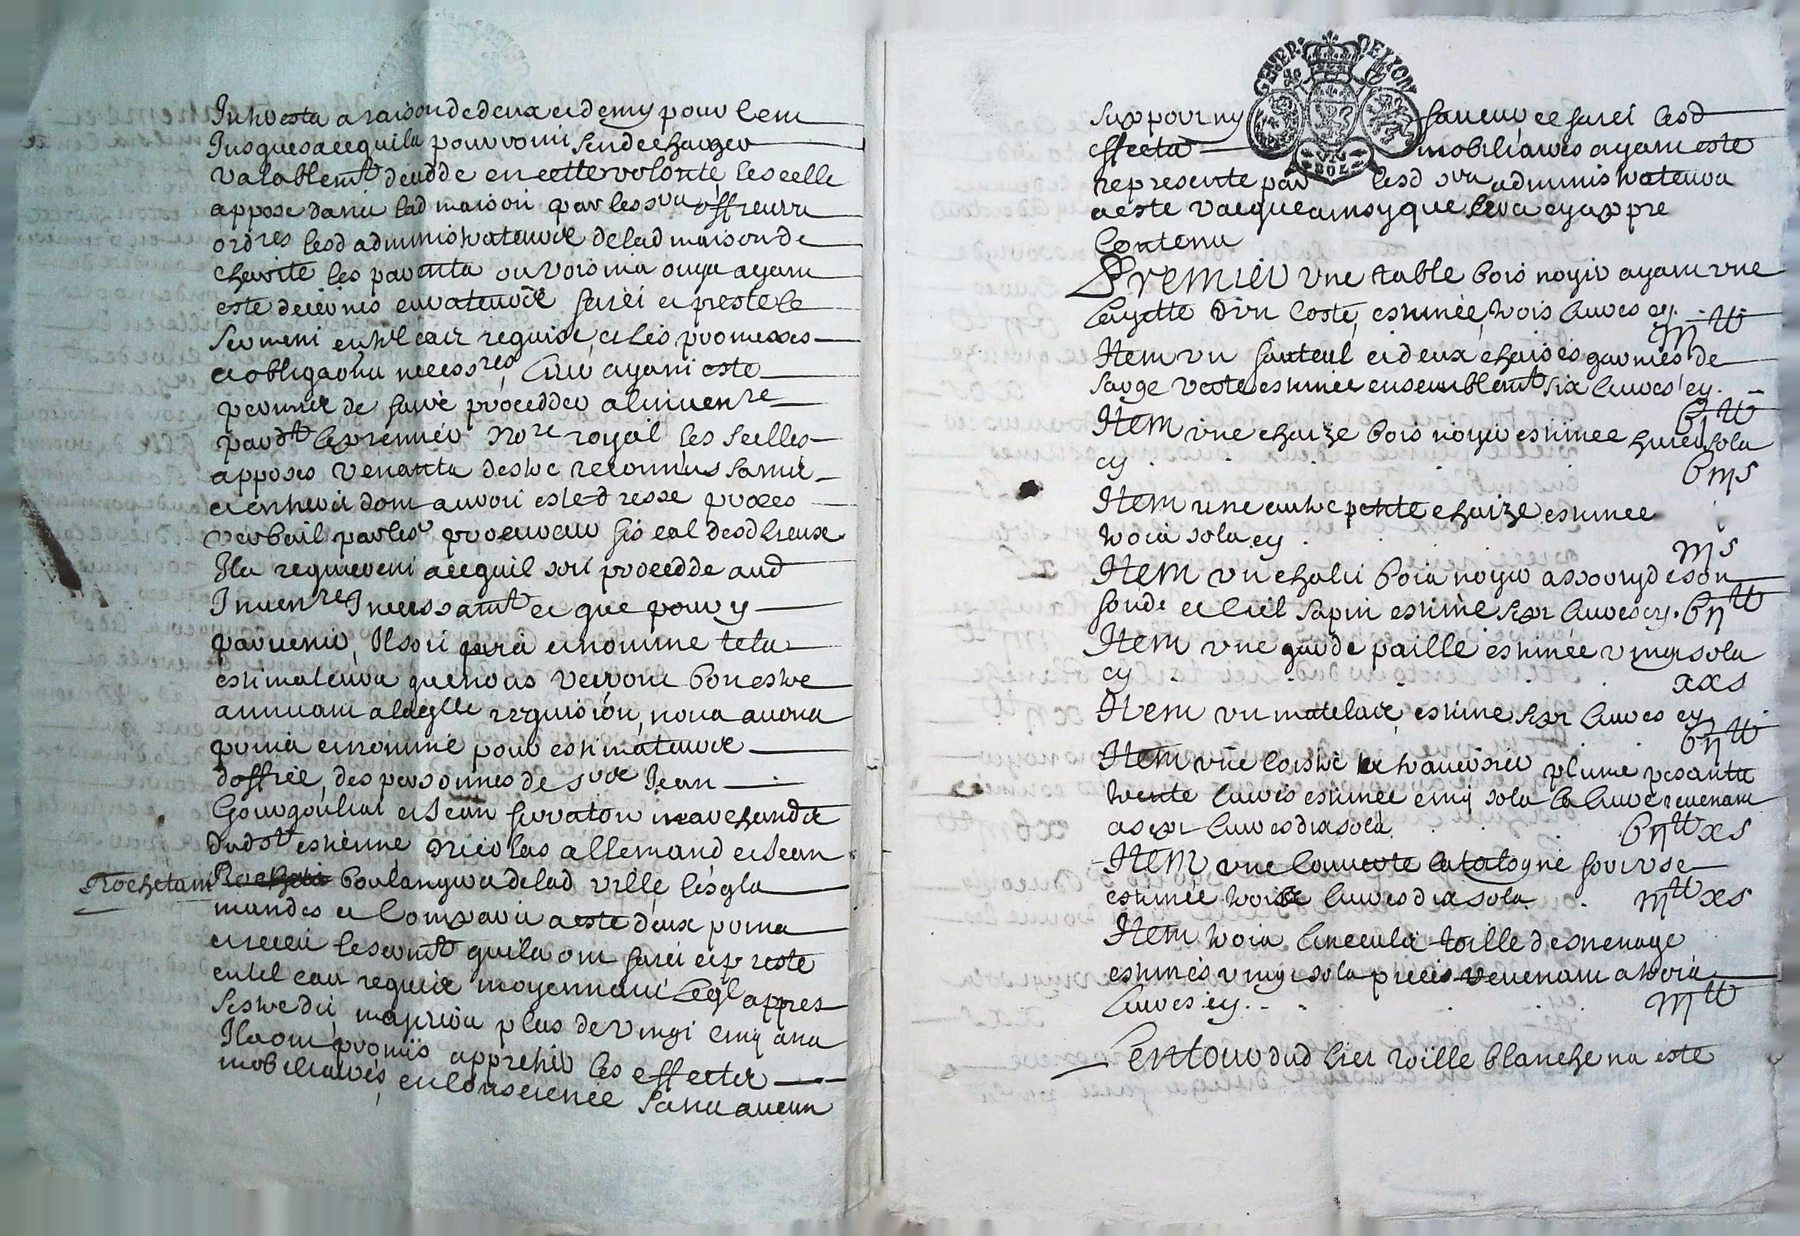 Inthesta a raison de deux et demy pour Cent
Jusques a ce quil a pourvoiri sen decharger
valablemt deudde en cette volonte le scelle
appose dans lad maison par les srs officiers
ordres lesd administrateurs de lad maison de
charité les parents ou voisins ouys ayant
este
serment en tel cas requis, et les promesses
et obligaons necessres Cluy ayant este
permis de faire procedder alinvenre
pardt le premier Nore royal les scelles
apposes
et entiers dont auroit este dresse proces
verbail par les procureur fiscal desd lieux
Ils requierent a ce quil soit procedde aud
Invenre Incessamt et que pour y
parvenir, Il soit pris et nomme tels
estimateurs que nous verrons bon estre
a laqlle requisiõn, nous avons
prins et nomme pour estimateurs
doffice, des personnes de srs Jean
Gourgouliat et Jean servaton marchands
dud st estienne Nicolas allemand et Jean
Rochetain boulangers de lad ville lesqls
mandes et Comparus a este deux prins
et receu le sermt quils ont faict et preste
en tel cas requis moyennant leql appres
sestre dit majeurs plus de vingt cinq ans
Ils ont promis apprehier les effects
mobiliaires, en Conscience sans aucun
GENER. DE LYON
VN SOL
support ny faveur ce faict lesd
effects mobiliaires ayant este
represente par lesd srs administrateurs
a este vacque ainsy que sera cy appre
Contenu
Premier une table bois noyer ayant une
Layette dun Costé, estimée, trois livres cy. iij ₶
Item un fauteul et deux chaises garnies de
sarge verte estimée ensemblemt six livres cy.
vj ₶
Item une chaize bois noyer estimee huict sols
cy . . . viijs
Item une autre petite chaize estimee
trois sols cy . iijs
Item un chalit bois noyer assorty de son
fonds et Ciel sapin estimé sept livres cy. vij ₶
Item une garde paille estimée vingt sols
cy . . . . xxs
Item un matelair, estime sept livres cy
vij ₶
Item une Coistre et traversier plume pesants
trente livres estimée cinq sols la livre revenant
a sept livres dix sols . . . vij ₶ xs
Item une Couverte Catalogne fort use
estimée trois livres dix sols . iij ₶ xs
Item trois linceuls toille de menage
estimés vingt sols piece revenant a trois
livres cy . . . iij ₶
Lentour dud lict toille blanche na este